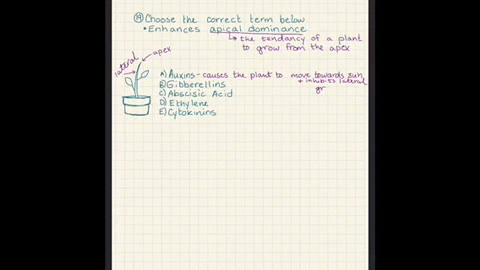 Choose the correct term below
• Enhances apical dominance
↳ the tendancy of a plant
to grow from the apex
apex
lateral
A) Auxins - causes the plant to move towards sun
+ inhibits lateral
gr
B) Gibberellins
C) Abscisic Acid
D) Ethylene
E) Cytokinins